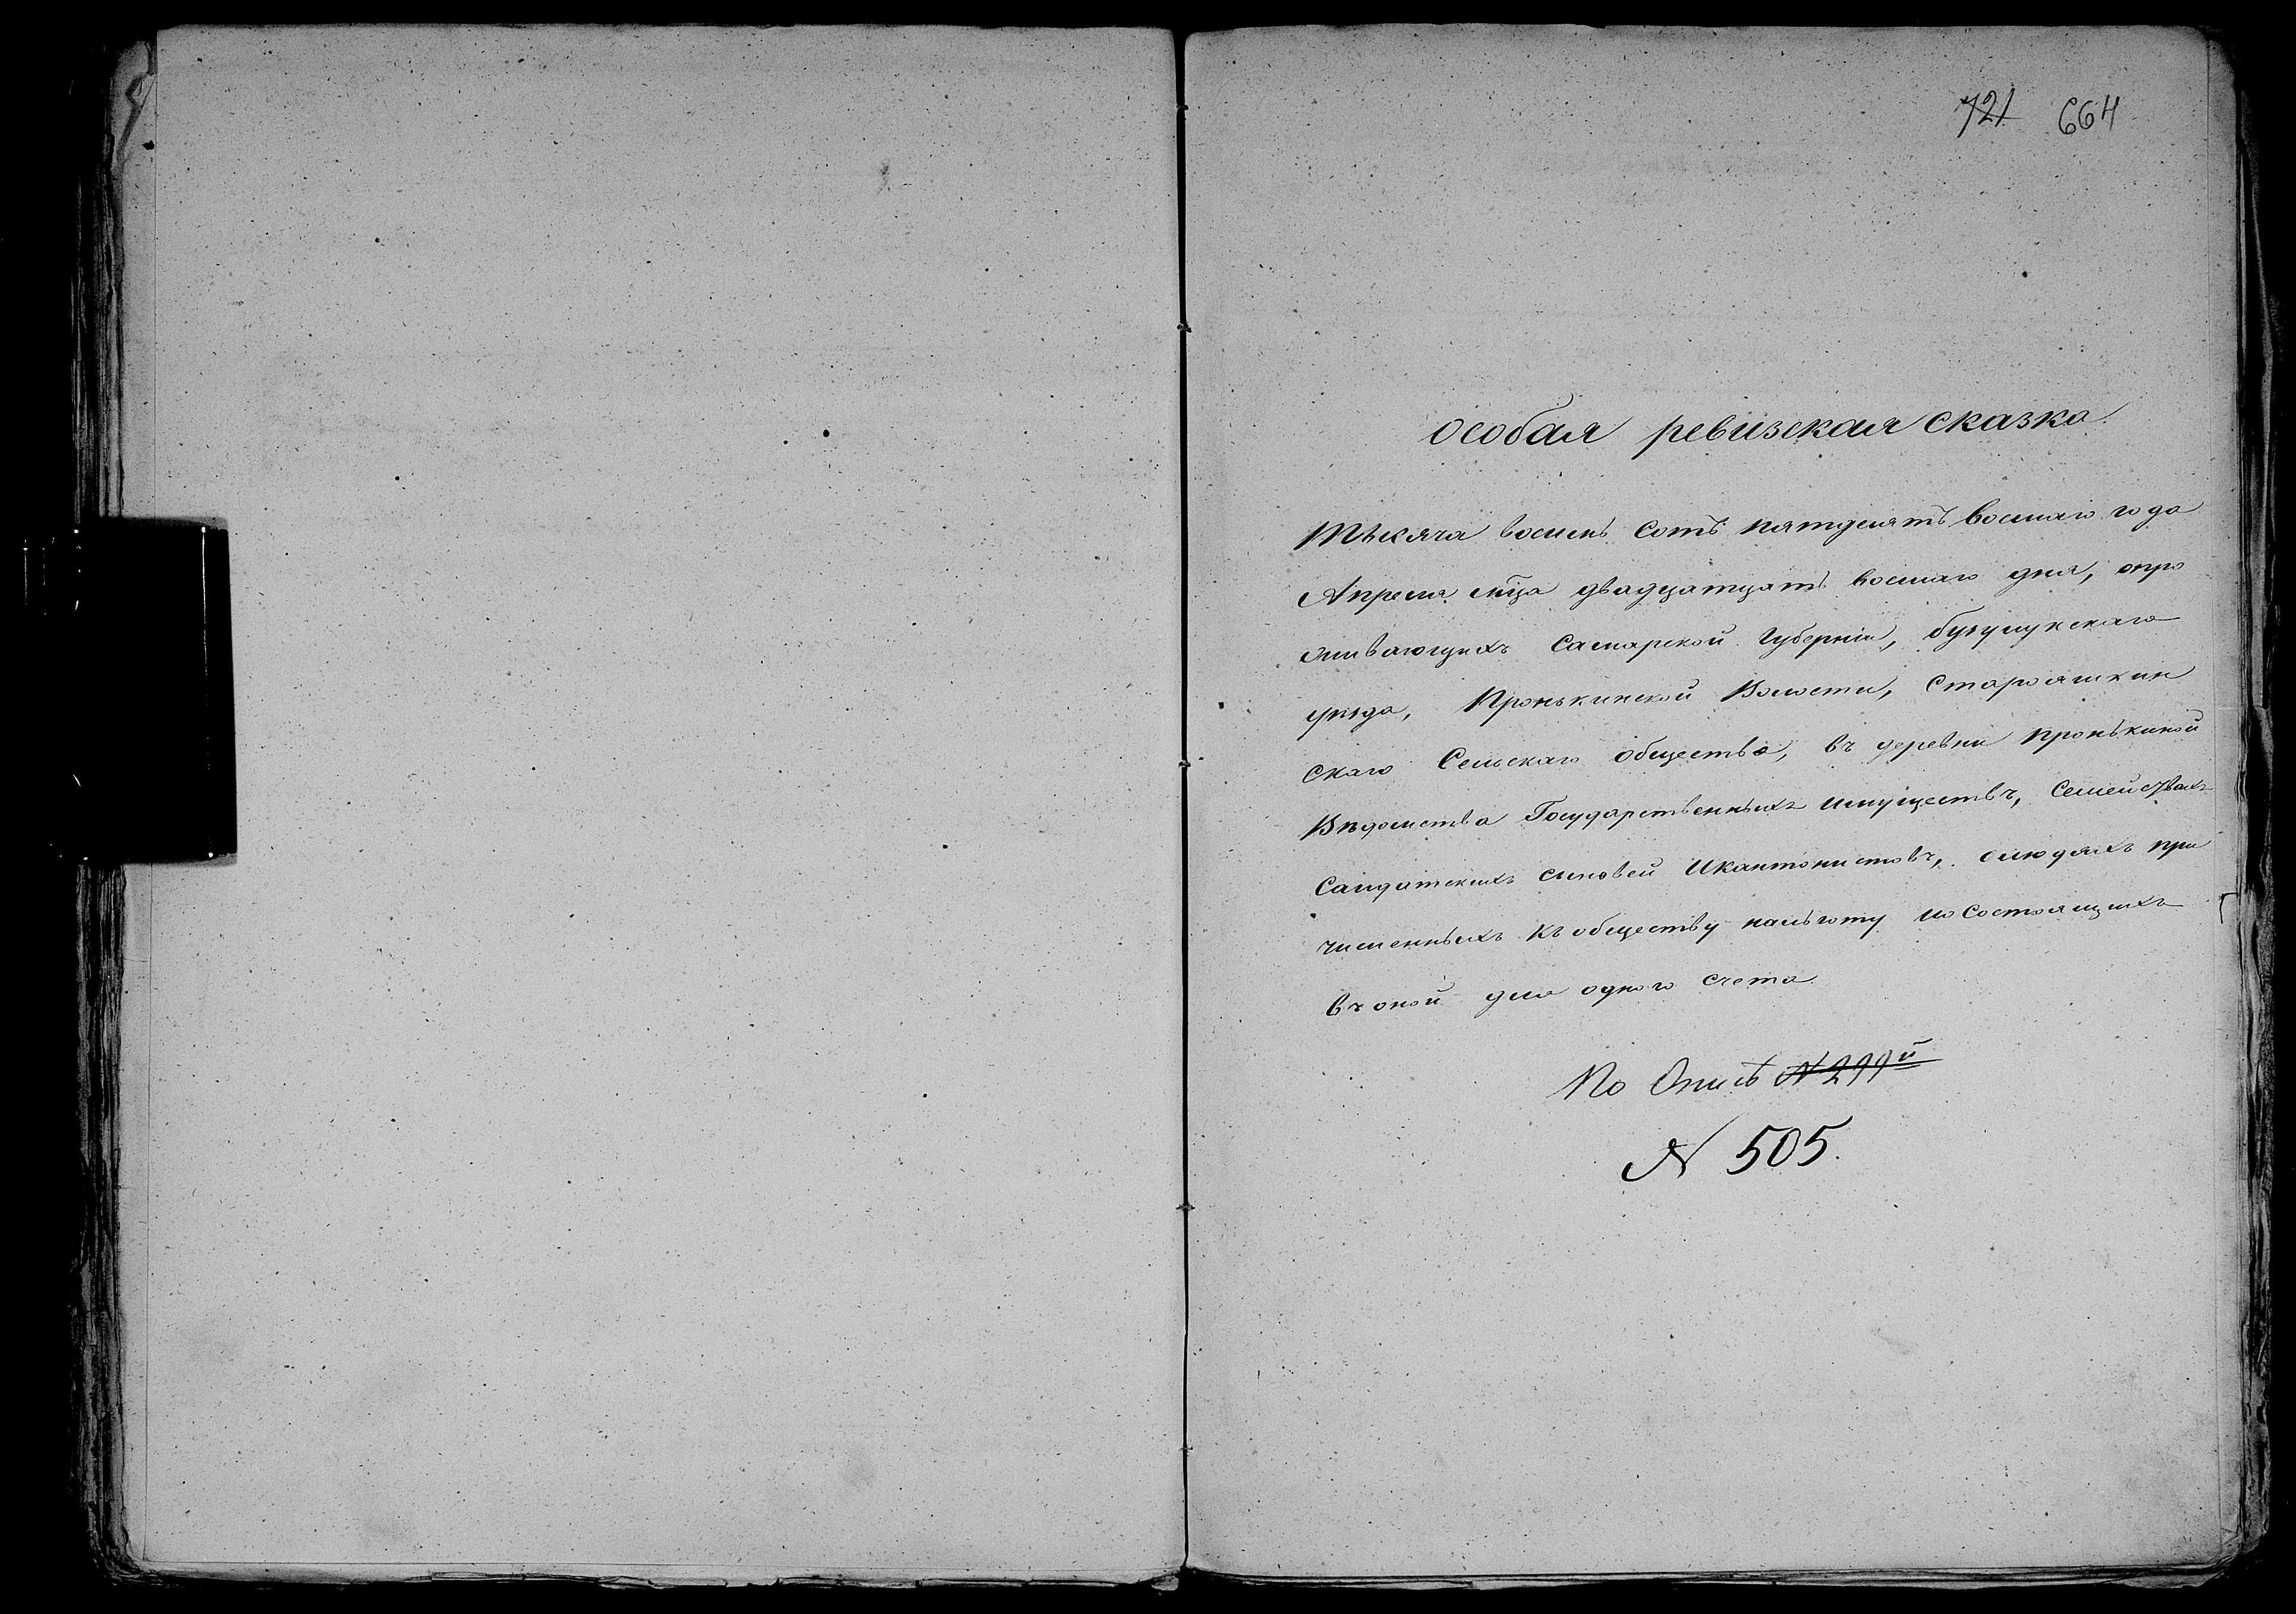 721 664
Особая ревизская сказка.
Тысяча восемь сотъ пятдесятъ восмаго года
Апреля мѣца двадцатцать восмаго дня, о про
живающихъ Самарской Губерніи, бузулукскаго
уѣзда, Пронькинской Волости, Староашкин
скаго Сельскаго общества, въ деревни пронькиной
Вѣдомства Государственныхъ имуществъ, Семействахъ
Салдатскихъ сыновей Икантонистовъ, олюдяхъ при
численныхъ къ обществу нальготу исостоящихъ
въ оной для одного счета.
По Описѣ №299й
№ 505.